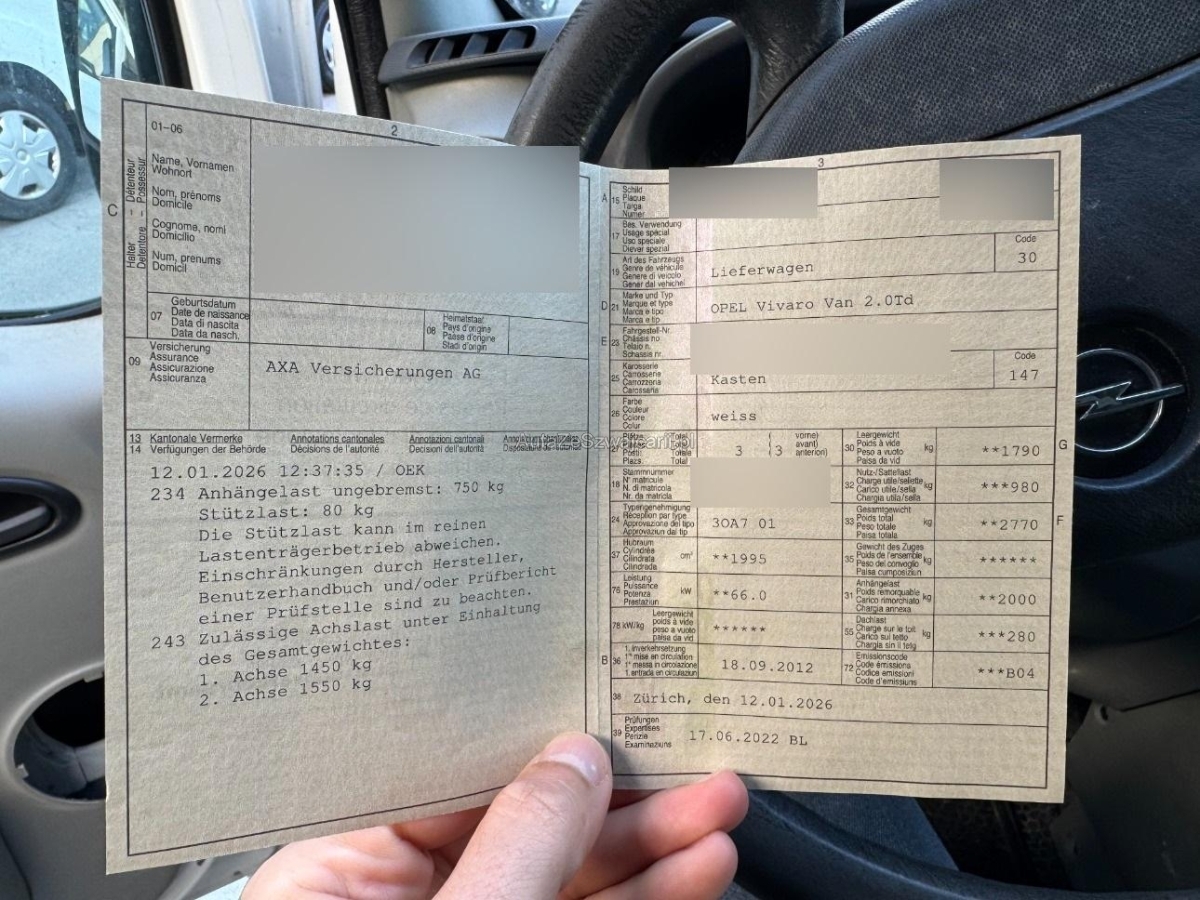 2
01-06
C
Halter – Détenteur
Detentore – Possessur
Name, Vornamen
Wohnort
Nom, prénoms
Domicile
Cognome, nomi
Domicilio
Num, prenums
Domicil
07
Geburtsdatum
Date de naissance
Data di nascita
Data da nasch.
08
Heimatstaat
Pays d'origine
Paese d'origine
Stadi d'origin
09
Versicherung
Assurance
Assicurazione
Assicuranza
AXA Versicherungen AG
13
14
Kantonale Vermerke
Verfügungen der Behörde
Annotations cantonales
Décisions de l'autorité
Annotazioni cantonali
Decisioni dell'autorità
12.01.2026 12:37:35 / OEK
234 Anhängelast ungebremst: 750 kg
Stützlast: 80 kg
Die Stützlast kann im reinen
Lastenträgerbetrieb abweichen.
Einschränkungen durch Hersteller,
Benutzerhandbuch und/oder Prüfbericht
einer Prüfstelle sind zu beachten.
243 Zulässige Achslast unter Einhaltung
des Gesamtgewichtes:
1. Achse 1450 kg
2. Achse 1550 kg
3
A 15
Schild
Plaque
Targa
Numer
17
Bes. Verwendung
Usage spécial
Uso speciale
Diever spezial
19
Art des Fahrzeugs
Genre de véhicule
Genere di veicolo
Gener dal vehichel
Lieferwagen
Code
30
D 21
Marke und Typ
Marque et type
Marca e tipo
Marca e tip
OPEL Vivaro Van 2.0Td
E 23
Fahrgestell-Nr.
Châssis no
Telaio n.
Schassis nr.
25
Karosserie
Carrosserie
Carrozzeria
Carossaria
Kasten
Code
147
26
Farbe
Couleur
Colore
Colur
weiss
Total
Total
Totale
Total
3 (3
vorne)
avant)
anteriori)
30
Leergewicht
Poids à vide
Peso a vuoto
Paisa da vid
kg
**1790
G
18
Stammnummer
N° matricule
N. di matricola
Nr. da matricla
32
Nutz-/Sattellast
Charge utile/sellette
Carico utile/sella
Chargia utila/sella
kg
***980
24
Typengenehmigung
Réception par type
Approvazione del tipo
Approvaziun dal tip
3OA7 01
33
Gesamtgewicht
Poids total
Peso totale
Paisa totala
kg
**2770
F
37
Hubraum
Cylindrée
Cilindrata
Cilindrada
cm³
**1995
35
Gewicht des Zuges
Poids de l'ensemble
Peso del convoglio
Paisa cumposiziun
kg
******
76
Leistung
Puissance
Potenza
Prestaziun
kW
**66.0
31
Anhängelast
Poids remorquable
Carico rimorchiato
Chargia annexa
kg
**2000
78 kW/kg
Leergewicht
poids à vide
peso a vuoto
paisa da vid
******
55
Dachlast
Charge sur le toit
Carico sul tetto
Chargia sin il tetg
kg
***280
B 36
1. Inverkehrsetzung
1re mise en circulation
1a messa in circolazione
1. entrada en circulaziun
18.09.2012
72
Emissionscode
Code émissions
Codice emissioni
Code d'emissiuns
***B04
38
Zürich, den 12.01.2026
39
Prüfungen
Expertises
Perizie
Examinaziuns
17.06.2022 BL